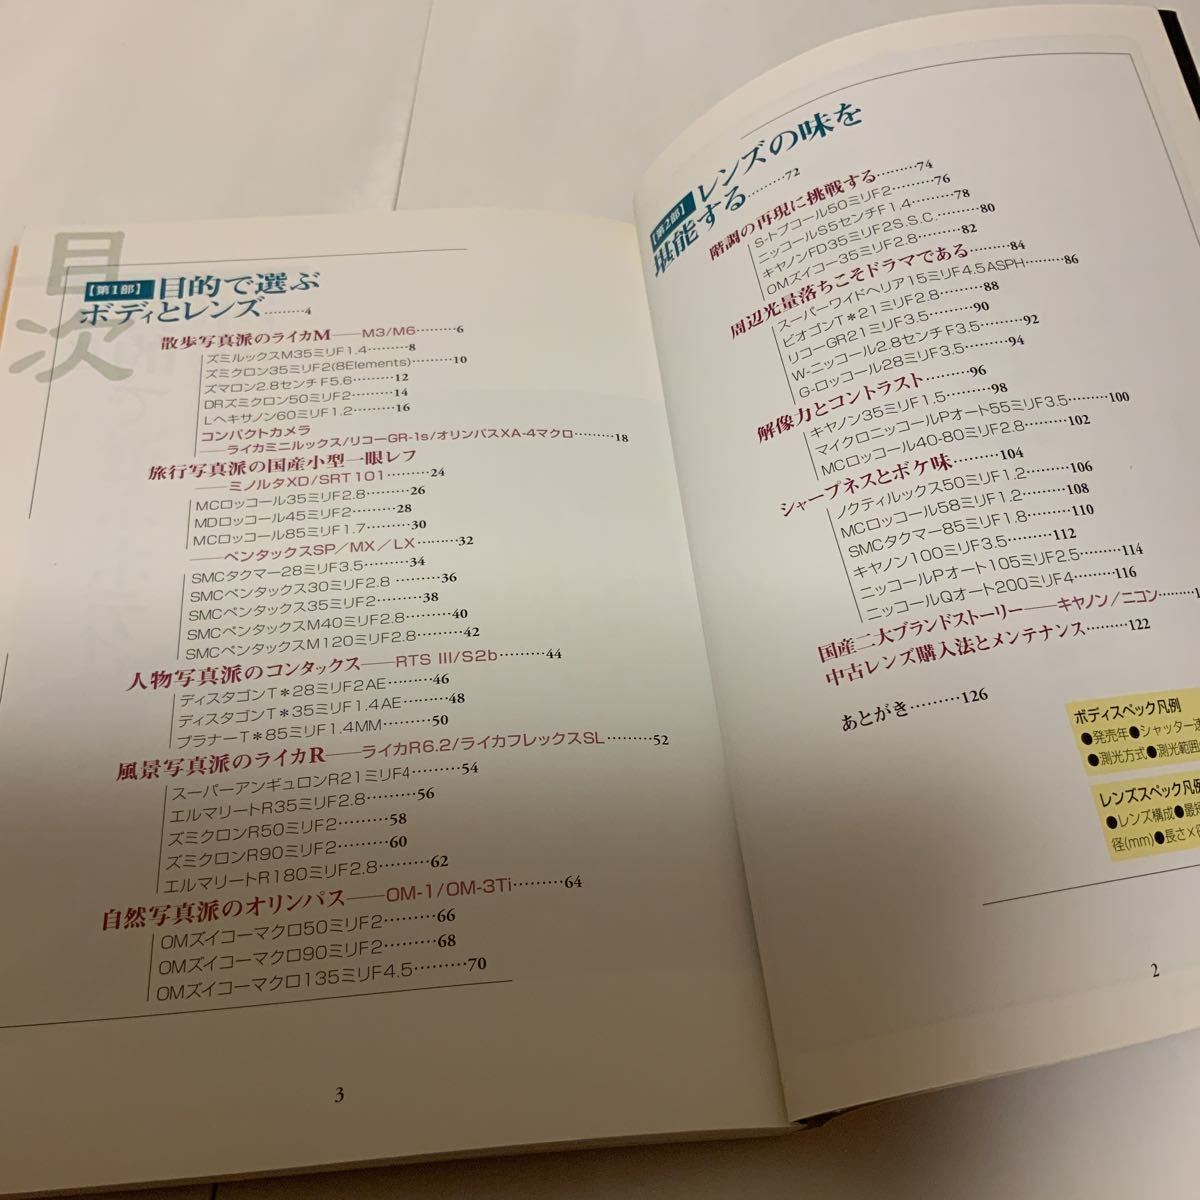 目次
【第1部】目的で選ぶ
ボディとレンズ………4
散歩写真派のライカM──M3/M6………6
ズミルックスM35ミリF1.4………8
ズミクロン35ミリF2(8Elements)………10
ズマロン2.8センチF5.6………12
DRズミクロン50ミリF2………14
Lヘキサノン60ミリF1.2………16
コンパクトカメラ
──ライカミニルックス/リコーGR-1s/オリンパスXA-4マクロ………18
旅行写真派の国産小型一眼レフ
──ミノルタXD/SRT101………24
MCロッコール35ミリF2.8………26
MDロッコール45ミリF2………28
MCロッコール85ミリF1.7………30
──ペンタックスSP/MX/LX………32
SMCタクマー28ミリF3.5………34
SMCペンタックス30ミリF2.8………36
SMCペンタックス35ミリF2………38
SMCペンタックスM40ミリF2.8………40
SMCペンタックスM120ミリF2.8………42
人物写真派のコンタックス──RTS III/S2b………44
ディスタゴンT＊28ミリF2AE………46
ディスタゴンT＊35ミリF1.4AE………48
プラナーT＊85ミリF1.4MM………50
風景写真派のライカR──ライカR6.2/ライカフレックスSL………52
スーパーアンギュロンR21ミリF4………54
エルマリートR35ミリF2.8………56
ズミクロンR50ミリF2………58
ズミクロンR90ミリF2………60
エルマリートR180ミリF2.8………62
自然写真派のオリンパス──OM-1/OM-3Ti………64
OMズイコーマクロ50ミリF2………66
OMズイコーマクロ90ミリF2………68
OMズイコーマクロ135ミリF4.5………70
3
【第2部】レンズの味を
堪能する………72
階調の再現に挑戦する………74
S-トプコール50ミリF2………76
ニッコールS5センチF1.4………78
キヤノンFD35ミリF2S.S.C.………80
OMズイコー35ミリF2.8………82
周辺光量落ちこそドラマである………84
スーパーワイドヘリア15ミリF4.5ASPH………86
ビオゴンT＊21ミリF2.8………88
リコーGR21ミリF3.5………90
W-ニッコール2.8センチF3.5………92
G-ロッコール28ミリF3.5………94
解像力とコントラスト………96
キヤノン35ミリF1.5………98
マイクロニッコールPオート55ミリF3.5………100
MCロッコール40-80ミリF2.8………102
シャープネスとボケ味………104
ノクティルックス50ミリF1.2………106
MCロッコール58ミリF1.2………108
SMCタクマー85ミリF1.8………110
キヤノン100ミリF3.5………112
ニッコールPオート105ミリF2.5………114
ニッコールQオート200ミリF4………116
国産二大ブランドストーリー──キヤノン/ニコン………1
中古レンズ購入法とメンテナンス………122
あとがき………126
ボディスペック凡例
●発売年●シャッター速
●測光方式●測光範囲
レンズスペック凡例
●レンズ構成●最短
径(mm)●長さ×
2